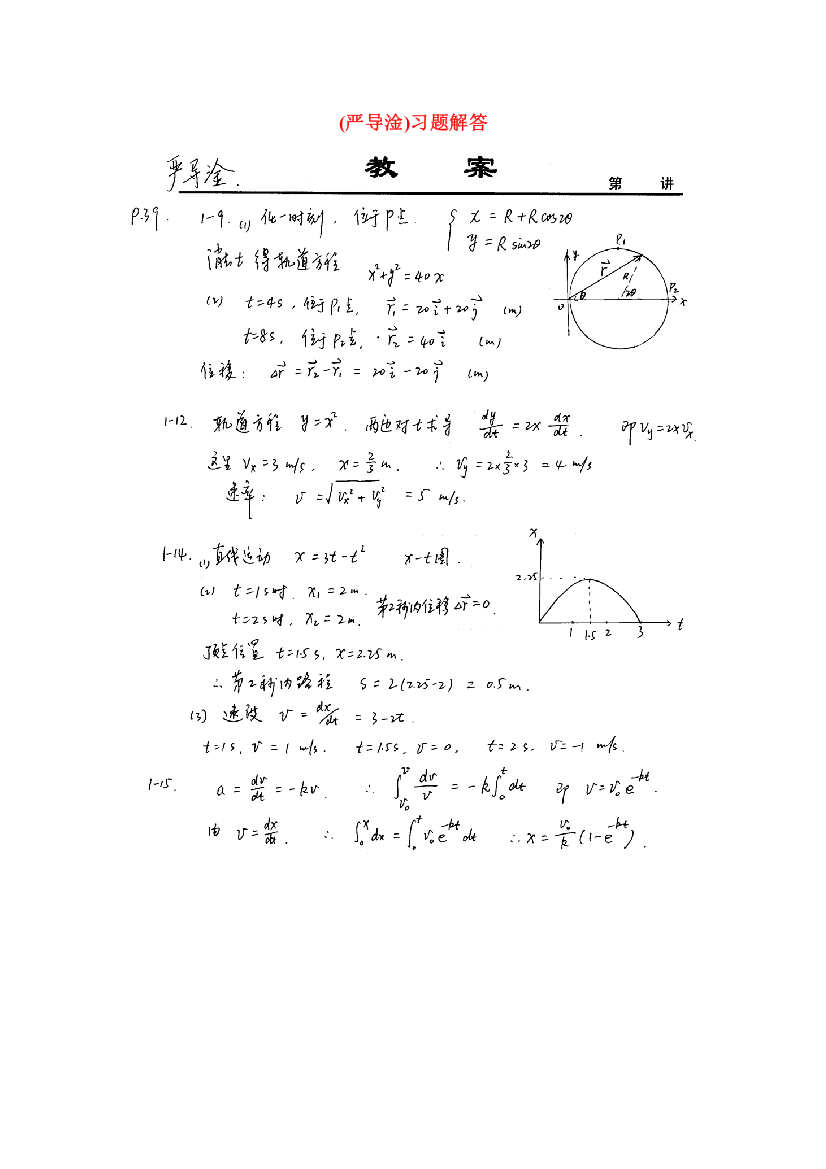 (严导淦)习题解答
严导淦.
教 案
第 讲
P.39. 1-9. (1) 任一时刻, 位于P点. { x = R + R cos2θ
y = R sin2θ
消去t 得轨道方程 x²+y²=40x
(2) t=4s, 位于P₁点, r⃗₁ = 20i⃗+20j⃗ (m)
t=8s, 位于P₂点, r⃗₂ = 40i⃗ (m)
位移: Δr⃗ = r⃗₂-r⃗₁ = 20i⃗-20j⃗ (m)
y P₁ r⃗ R θ 2θ P₂ o x
1-12. 轨道方程 y=x². 两边对t求导 dy/dt = 2x dx/dt. 即 v_y=2xv_x.
这里 v_x=3 m/s, x=2/3 m. ∴ v_y=2×2/3×3 = 4 m/s
速率: v = √(v_x²+v_y²) = 5 m/s.
1-14. (1) 直线运动 x=3t-t² x-t图.
(2) t=1s时, x₁=2m. 第2秒内位移 Δr⃗=0.
t=2s时, x₂=2m.
x 2.25 1 1.5 2 3 t
顶点位置 t=1.5 s, x=2.25 m.
∴ 第2秒内路程 s = 2(2.25-2) = 0.5 m.
(3) 速度 v = dx/dt = 3-2t.
t=1s, v=1 m/s. t=1.5s, v=0, t=2s, v=-1 m/s.
1-15. a = dv/dt = -kv. ∴ ∫_{v₀}^{v} dv/v = -k∫₀^t dt 即 v=v₀e^{-kt}.
由 v=dx/dt. ∴ ∫₀^x dx = ∫₀^t v₀e^{-kt}dt ∴ x = v₀/k (1-e^{-kt}).